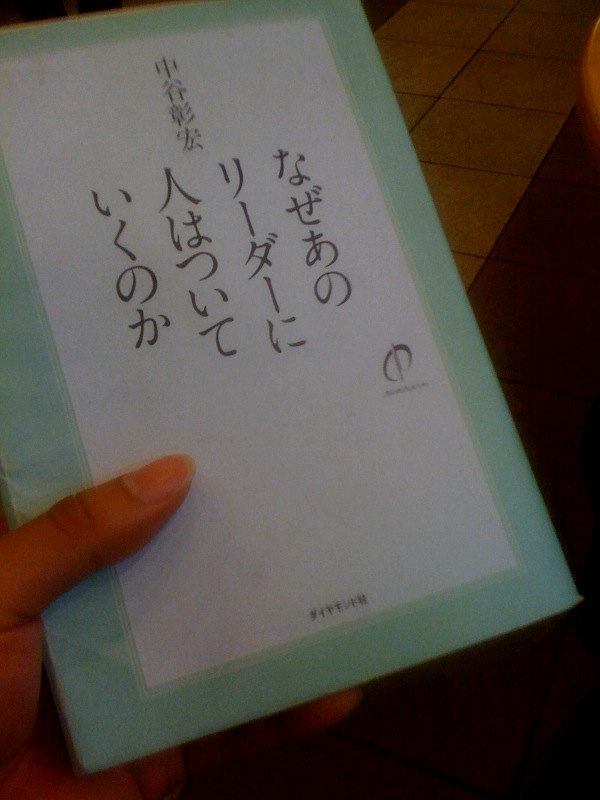 なぜあの
リーダーに
人はついて
いくのか
中谷彰宏
ダイヤモンド社